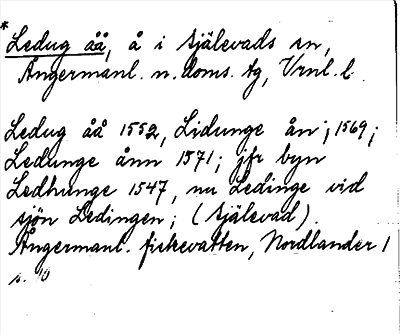 *Ledug åå, å i Själevads sn,
Ångermanl. n. doms. tg, Vrnl. l.
Ledug åå 1552, Lidunge ån; 1569;
Ledunge ånn 1571; jfr byn
Ledhunge 1547, nu Ledinge vid
sjön Ledingen; (Själevad).
Ångermanl. fiskevatten, Nordlander 1
s.